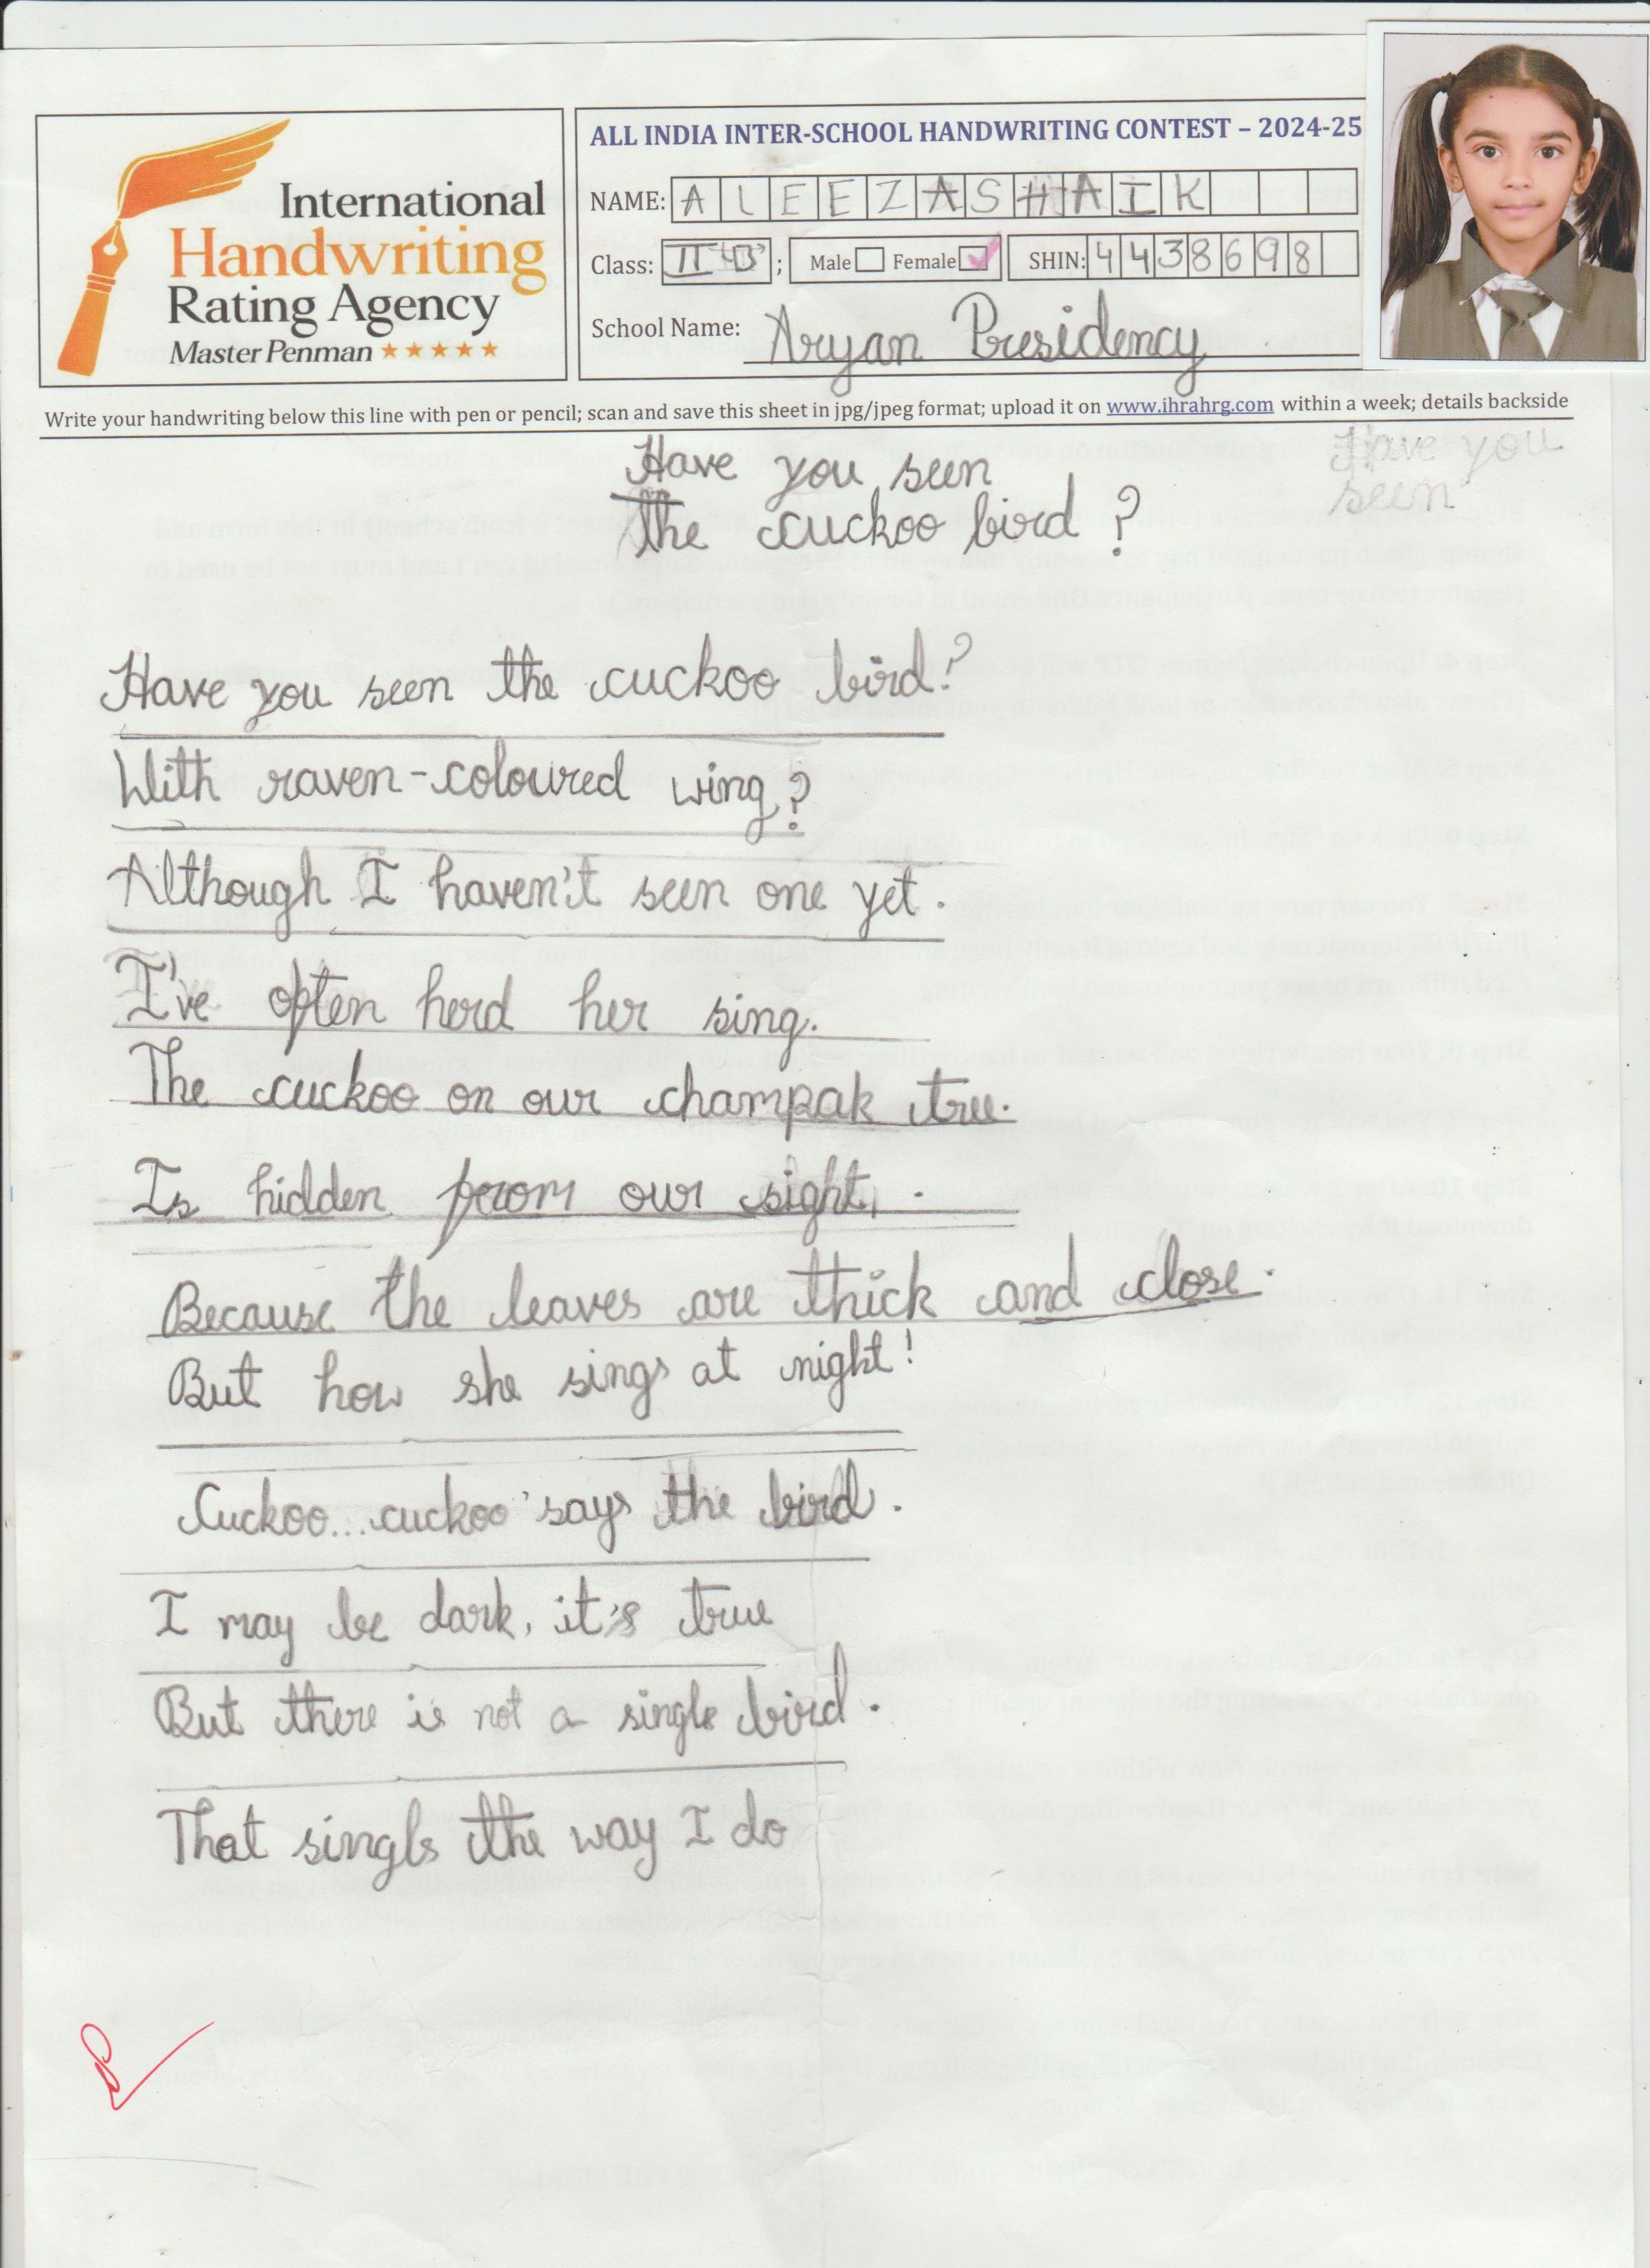 International
Handwriting
Rating Agency
Master Penman
ALL INDIA INTER-SCHOOL HANDWRITING CONTEST – 2024-25
NAME: ALEEZA SHAIK
Class: II ; Male Female SHIN: 4438698
School Name: Aryan Presidency
Write your handwriting below this line with pen or pencil; scan and save this sheet in jpg/jpeg format; upload it on www.ihrahrg.com within a week; details backside
Have you seen
the cuckoo bird ?
Have you
seen
Have you seen the cuckoo bird?
With raven-coloured wing?
Although I haven't seen one yet.
I've often herd her sing.
The cuckoo on our champak tree.
Is hidden from our sight, .
Because the leaves are thick and close.
But how she sings at night!
Cuckoo...cuckoo' says the bird.
I may be dark, it's true
But there is not a single bird.
That singls the way I do